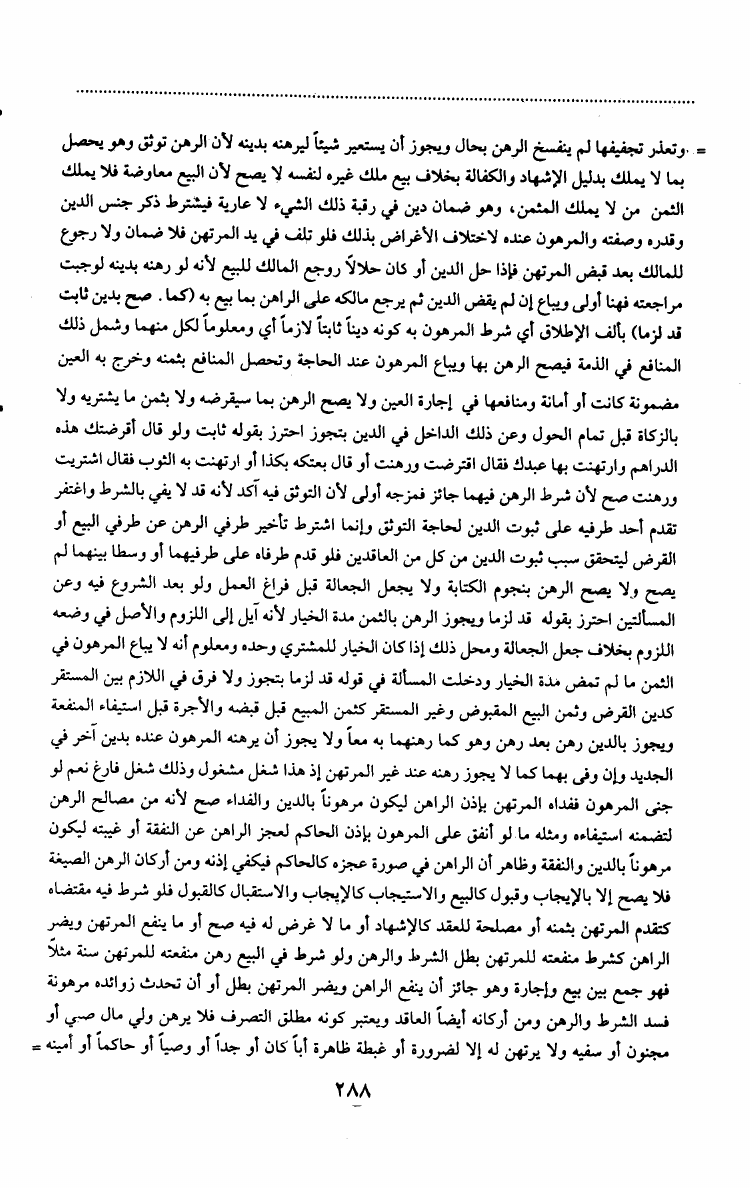 = وتعذر تجفيفها لم ينفسخ الرهن بحال ويجوز أن يستعير شيئاً ليرهنه بدينه لأن الرهن توثق وهو يحصل
بما لا يملك بدليل الإشهاد والكفالة بخلاف بيع ملك غيره لنفسه لا يصح لأن البيع معاوضة فلا يملك
الثمن من لا يملك المثمن، وهو ضمان دين في رقبة ذلك الشيء لا عارية فيشترط ذكر جنس الدين
وقدره وصفته والمرهون عنده لاختلاف الأغراض بذلك فلو تلف في يد المرتهن فلا ضمان ولا رجوع
للمالك بعد قبض المرتهن فإذا حل الدين أو كان حلالاً روجع المالك للبيع لأنه لو رهنه بدينه لوجبت
مراجعته فهنا أولى ويباع إن لم يقض الدين ثم يرجع مالكه على الراهن بما بيع به (كما. صح بدين ثابت
قد لزما) بألف الإطلاق أي شرط المرهون به كونه ديناً ثابتاً لازماً أي ومعلوماً لكل منهما وشمل ذلك
المنافع في الذمة فيصح الرهن بها ويباع المرهون عند الحاجة وتحصل المنافع بثمنه وخرج به العين
مضمونة كانت أو أمانة ومنافعها في إجارة العين ولا يصح الرهن بما سيقرضه ولا بثمن ما يشتريه ولا
بالزكاة قبل تمام الحول وعن ذلك الداخل في الدين بتجوز احترز بقوله ثابت ولو قال أقرضتك هذه
الدراهم وارتهنت بها عبدك فقال اقترضت ورهنت أو قال بعتكه بكذا أو ارتهنت به الثوب فقال اشتريت
ورهنت صح لأن شرط الرهن فيهما جائز فمزجه أولى لأن التوثق فيه آكد لأنه قد لا يفي بالشرط واغتفر
تقدم أحد طرفيه على ثبوت الدين لحاجة التوثق وإنما اشترط تأخير طرفي الرهن عن طرفي البيع أو
القرض ليتحقق سبب ثبوت الدين من كل من العاقدين فلو قدم طرفاه على طرفيهما أو وسطا بينهما لم
يصح ولا يصح الرهن بنجوم الكتابة ولا يجعل الجعالة قبل فراغ العمل ولو بعد الشروع فيه وعن
المسألتين احترز بقوله قد لزما ويجوز الرهن بالثمن مدة الخيار لأنه آيل إلى اللزوم والأصل في وضعه
اللزوم بخلاف جعل الجعالة ومحل ذلك إذا كان الخيار للمشتري وحده ومعلوم أنه لا يباع المرهون في
الثمن ما لم تمض مدة الخيار ودخلت المسألة في قوله قد لزما بتجوز ولا فرق في اللازم بين المستقر
كدين القرض وثمن البيع المقبوض وغير المستقر كثمن المبيع قبل قبضه والأجرة قبل استيفاء المنفعة
ويجوز بالدين رهن بعد رهن وهو كما رهنهما به معاً ولا يجوز أن يرهنه المرهون عنده بدين آخر في
الجديد وإن وفى بهما كما لا يجوز رهنه عند غير المرتهن إذ هذا شغل مشغول وذلك شغل فارغ نعم لو
جنى المرهون ففداه المرتهن بإذن الراهن ليكون مرهوناً بالدين والفداء صح لأنه من مصالح الرهن
لتضمنه استيفاءه ومثله ما لو أنفق على المرهون بإذن الحاكم لعجز الراهن عن النفقة أو غيبته ليكون
مرهوناً بالدين والنفقة وظاهر أن الراهن في صورة عجزه كالحاكم فيكفي إذنه ومن أركان الرهن الصيغة
فلا يصح إلا بالإيجاب وقبول كالبيع والاستيجاب كالإيجاب والاستقبال كالقبول فلو شرط فيه مقتضاه
كتقدم المرتهن بثمنه أو مصلحة للعقد كالإشهاد أو ما لا غرض له فيه صح أو ما ينفع المرتهن ويضر
الراهن كشرط منفعته للمرتهن بطل الشرط والرهن ولو شرط في البيع رهن منفعته للمرتهن سنة مثلاً
فهو جمع بين بيع وإجارة وهو جائز أن ينفع الراهن ويضر المرتهن بطل أو أن تحدث زوائده مرهونة
فسد الشرط والرهن ومن أركانه أيضاً العاقد ويعتبر كونه مطلق التصرف فلا يرهن ولي مال صبي أو
مجنون أو سفيه ولا يرتهن له إلا لضرورة أو غبطة ظاهرة أباً كان أو جداً أو وصياً أو حاكماً أو أمينه =
٢٨٨